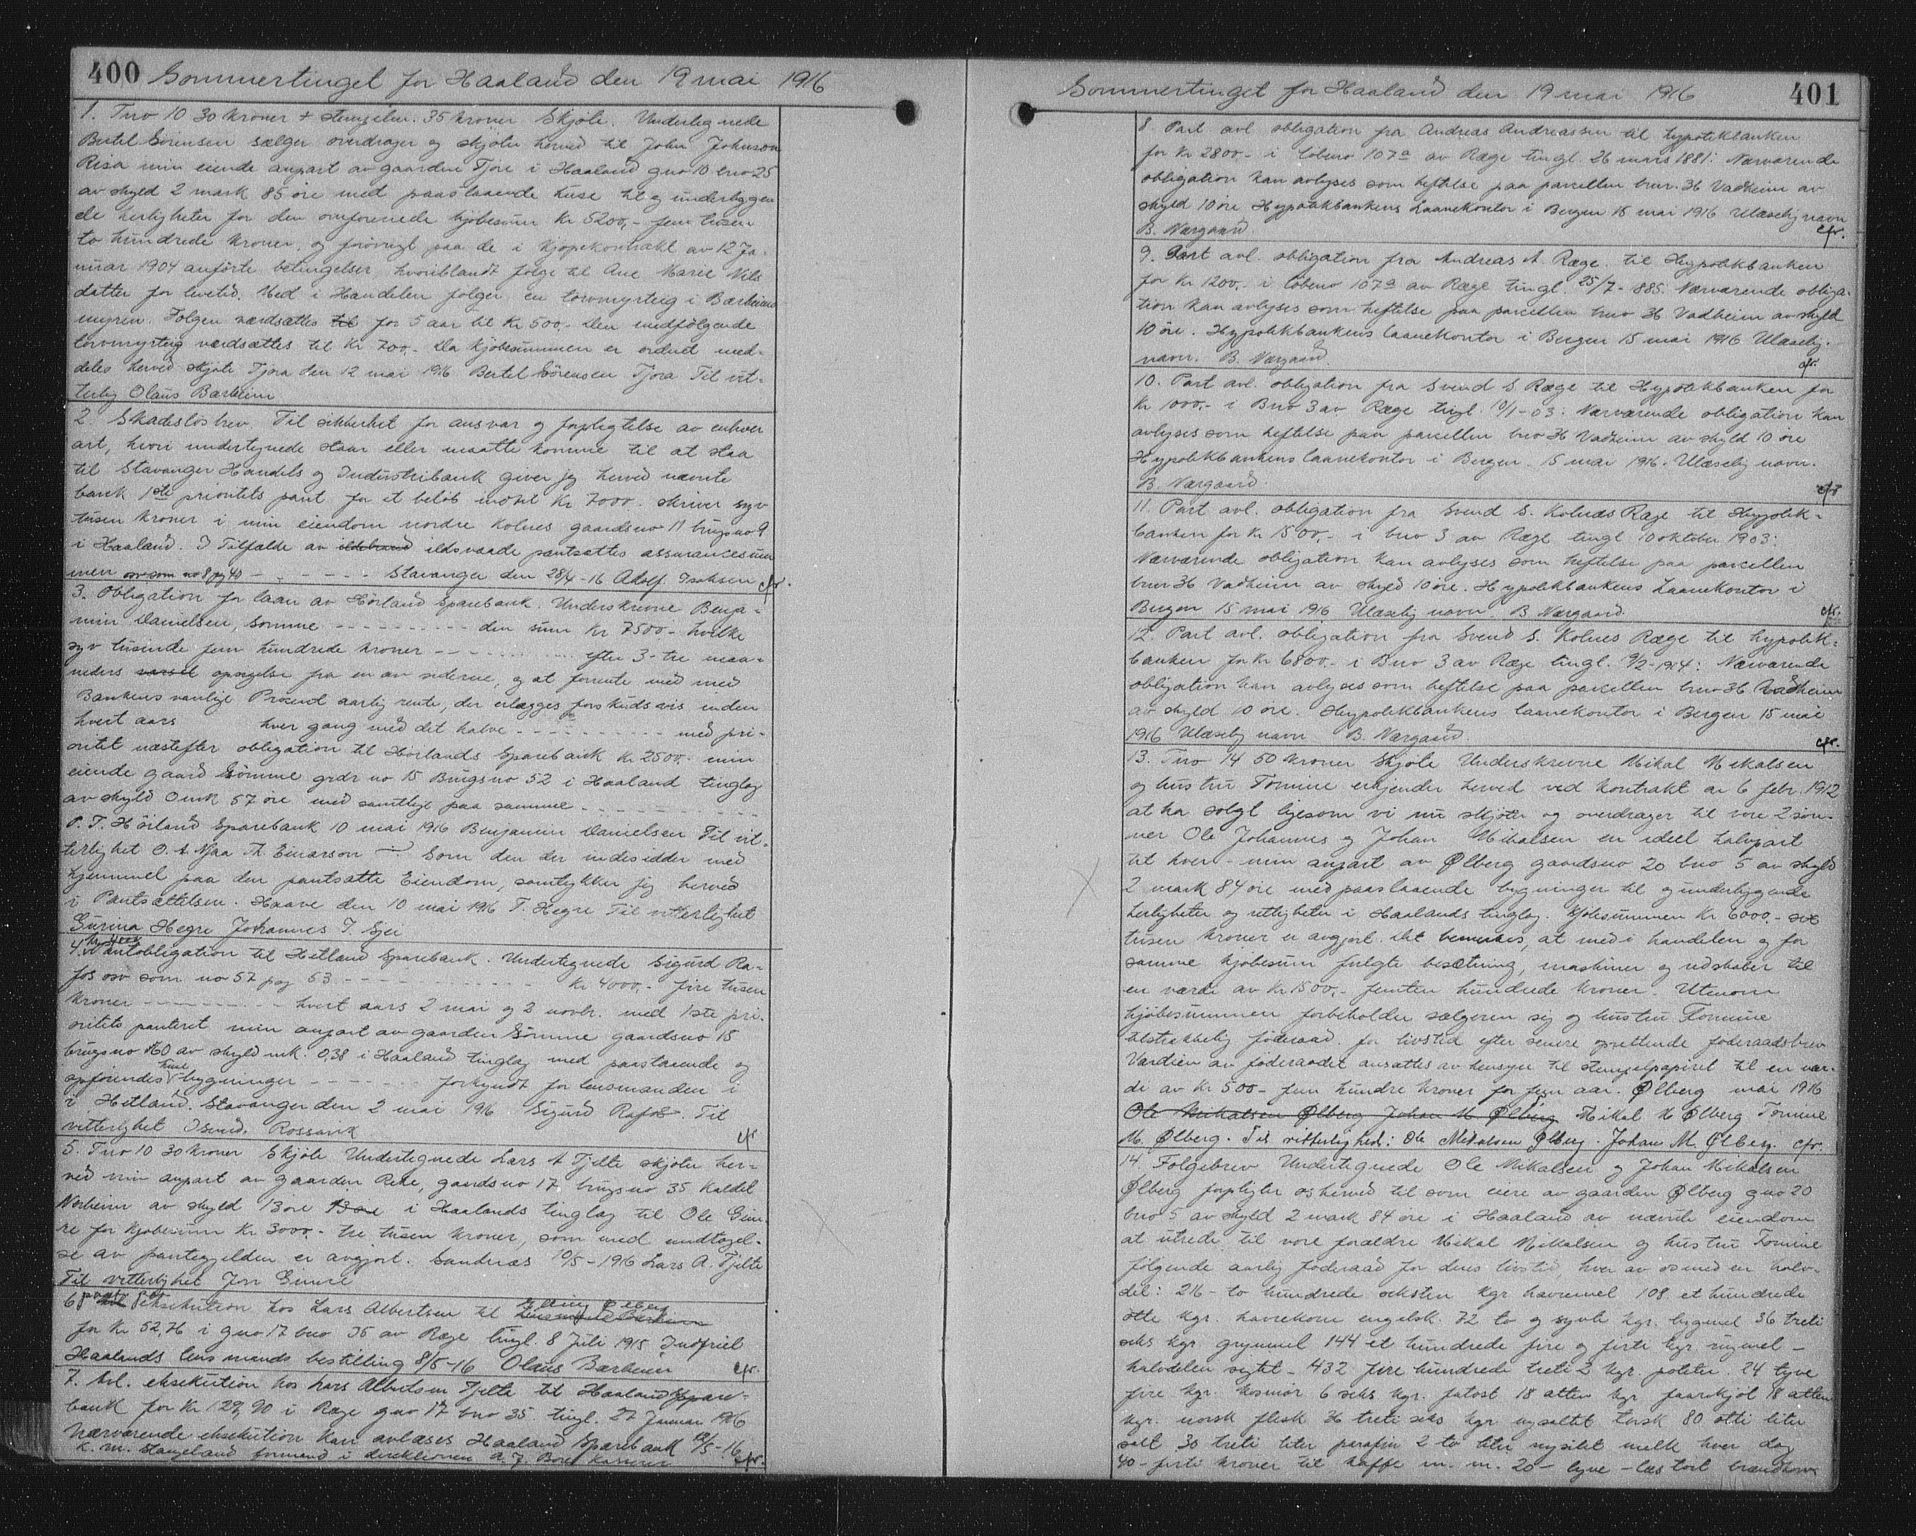 400 Sommertinget for Haaland den 19 mai 1916
1. Tivo 10 30 kroner + Stempelm. 35 kroner Skjöte. Undertegnede
Bertel Sörensen sælger overdrager og skjöter herved til John Johnson
Risa min eiende anpart av gaarden Tjore i Haaland gno 10 bno 25
av skyld 2 mark 85 öre med paastaaende huse til og underliggen
de herligheter for den omforenede kjöbesum Kr 5200,- fem tusen
to hundrede kroner, og forövrigt paa de i Kjöpekontrakt av 12 Ja-
nuar 1904 anförte betingelser hvoriblandt folge til Ane Marie Nils
datter for levetid. Med i Handelen fölger en torvmyrteig i Bærheims
myren. Folgen værdsættes til for 5 aar til Kr 500,- Den medfölgende
torvmyrteig værdsættes til Kr 200,- Da kjöbesummen er ordnet med-
deles herved skjöte Tjora den 12 mai 1916 Bertel Sörensen Tjora Til vit-
terlig Olaus Bærheim
2. Skadeslösbrev. Til sikkerhet for ansvar og forpligtelse av enhver
art, hvori undertegnede staar eller maatte komme til at staa
til Stavanger Handels og Industribank giver jeg herved nævnte
bank 1ste prioritets pant for et belöb indtil Kr 7000- skriver syv
tusen kroner i min eiendom nordre Kolnes gaardsno 11 brugsno 9
i Haaland. I Tilfælde av ildebrand ildsvaade pantsættes assurancesum
men osv som no 8 pg 40 - - - - - Stavanger den 28/4-16 Adolf Isaksen cfr.
3. Obligation for laan av Hörland Sparebank. Underskrevne Benja-
min Danielsen, Sömme - - - - - - den sum Kr 7500- hvilke
syv tusinde fem hundrede kroner - - - - - - efter 3- tre maa-
neders varsel opsigelse fra en av siderne, og at forrente med med
Bankens vanlige Procent aarlig rente, der erlægges forskudsvis inden
hvert aars hver gang med det halve - - - - - - med pri-
oritet næstefter obligation til Hörlands Sparebank Kr 2500.- min
eiende gaard Sömme grdr no 15 Brugsno 52 i Haaland tinglag
av skyld 0 mk 57 öre med samtlige paa samme - - - - - -
P. T. Höiland Sparebank 10 mai 1916 Benjamin Danielsen Til vit-
terlighet O. A. Njaa Th Einarson - Som den der indesidder med
hjemmel paa den pantsatte Eiendom, samtykker jeg herved
i Pantsættelsen. Haave den 10 mai 1916 T. Hegre Til vitterlighet
Gurina Hegre Johannes T. Gjei
4. kr 4000 Pantobligation til Hetland Sparebank. Undertegnede Sigurd Ra-
fos osv som no 57 pag 63 - - - - - - - Kr 4000,- fire tusen
kroner - - - - - - hvert aars 2 mai og 2 novbr. med 1ste pri-
oritets panteret min anpart av gaarden Sömme gaardsno 15
brugsno 160 av skyld mk. 0,38 i Haaland tinglag med paastaaende og
opförendes huse bygninger - - - - - - forkyndt for lensmanden i
i Hetland. Stavanger den 2 mai 1916 Sigurd Rafos. Til
vitterlighet Rossavik cfr
5. Tivo 10 30 kroner Skjöte Undertegnede Lars A Tjelte skjöter her-
ved min anpart av gaarden Rege, gaardsno 17 brugsno 35 kaldet
Norheim av skyld 13 öre 13 öre i Haalands tinglag til Ole Gim-
re for kjöbesum Kr 3000.- tre tusen kroner, som med undtagel-
se av pantegjelden er avgjort. Sandnæs 10/5-1916 Lars A. Tjelte
Til vitterlighet Jon Gimre
6 Eksekution hos Lars Albertsen til Elling Ölberg
for Kr 52,76 i gno 17 bno 35 av Ræge tingl. 8 Juli 1915 Indfriet
Haalands lensmands bestilling 8/5-16 Olaus Bærheim cfr.
7. Avl. eksekution hos Lars Albertsen Tjelte til Haaland Spare-
bank for Kr 129,90 i Ræge gno 17 bno 35 tingl. 27 Januar 1916
Nærværende eksekution kan avlæses Haaland Sparebank 12/5-16
K. M. Stangeland formand i direktionen A. J. Bore kasserer cfr.
Sommertinget for Haaland den 19 mai 1916 401
8. Part avl. obligation fra Andreas Andreassen til Hypotekbanken
for Kr 2800- i Löbeno 107a av Ræge tingl 26 mars 1881: Nærværende
obligation kan avlyses som heftelse paa parcellen bno. 36 Vadheim av
skyld 10 öre Hypothekbankens Laanekontor i Bergen 15 mai 1916 Ulæselig navn
B. Næsgaard cfr.
9. Part avl. obligation fra Andreas A. Ræge til Hypotekbanken
for Kr 1200,- i löbeno 107a av Ræge tingl. 25/7-885. Nærværende obliga-
tion kan avlyses som heftelse paa parcellen bno 36 Vadheim av skyld
10 öre. Hypotekbankens laanekontor i Bergen 15 mai 1916 Ulæselig
navn. B. Næsgaard cfr.
10. Part avl. obligation fra Svend S Ræge til Hypotekbanken for
Kr 1000,- i Bno 3 av Ræge tingl. 10/1-03: Nærværende obligation kan
avlyses som heftelse paa parcellen bno 36 Vadheim av skyld 10 öre
Hypotekbankens laanekontor i Bergen. 15 mai 1916. Ulæselig navn.
B. Næsgaard cfr
11. Part avl. obligation fra Svend S. Kolnæs Ræge til Hypotek-
banken for Kr 1500,- i bno 3 av Ræge tingl 10 oktober 1903:
Nærværende obligation kan avlyses som heftelse paa parcellen
bno 36 Vadheim av skyld 10 öre. Hypotekbankens Laanekontor i
Bergen 15 mai 1916 Ulæselig navn. B. Næsgaard. cfr.
12. Part avl. obligation fra Svend S. Kolnes Ræge til Hypotek-
banken for Kr 6800,- i Bno 3 av Ræge tingl. 9/2-1914: Nærværende
obligation kan avlyses som heftelse paa parcellen bno 36 Vadheim
av skyld 10 öre. Hypotekbankens laanekontor i Bergen 15 mai
1916 Ulæselig navn B. Næsgaard cfr.
13. Tivo 14 50 kroner Skjöte Underskrevne Mikal Mikalsen
og hustru Tomine erkjender herved ved kontrakt av 6 febr. 1912
at ha solgt ligesom vi nu skjöter og overdrager til vore 2 sön-
ner Ole Johannes og Johan Mikalsen en ideel halvpart
til hver - min anpart av Ølberg gaardsno 20 bno 5 av skyld
2 mark 84 öre med paastaaende bygninger til og underliggende
herligheter og rettigheter i Haalands tinglag. Kjöbesummen Kr 6000,- sex
tusen kroner er avgjort. Det bemerkes, at med i handelen og for
samme kjöbesum fulgte besætning, maskiner og redskaber til
en værdi av Kr 1500,- femten hundrede kroner. Utenom
kjöbesummen forbeholder sælgeren sig og hustru Tomine
tilstrækkelig föderaad for livstid efter senere oprettende föderaadsbrev
Værdien av föderaadet ansættes av hensyn til stempelpapiret til en vær-
di av Kr 500- fem hundre kroner for fem aar. Ølberg mai 1916
Ole Mikalsen Ølberg Johan M Ølberg Mikal M Ølberg Tomine
M. Ølberg. Til vitterlighed: Ole Mikalsen Ølberg. Johan M. Ølberg. cfr.
14. Folgebrev Undertegnede Ole Mikalsen og Johan Mikalsen
Ølberg forpligter os herved til som eiere av gaarden Ølberg gno 20
bno 5 av skyld 2 mark 84 öre i Haaland av nævnte eiendom
at utrede til vore forældre Mikal Mikalsen og hustru Tomine
fölgende aarlig föderaad for deres livstid hver av os med en halv-
del: 216- to hundrede seksten kgr havremel 108 et hundrede
otte kgr. havrekorn engelsk. 72 to og sytti kgr. bygmel 36 treti
seks kgr. grynmel 144 et hundrede fire og förti kgr. rugmel -
halvdelen sigtet - 432 fire hundrede treti 2 kgr. poteter. 24 tyve
fire kgr. kosmör 6 seks kgr. fatost 18 atten kgr faarekjöt 18 atten
kgr. norsk flesk 36 treti seks kgr nysaltet torsk 80 otti liter
salt 30 treti liter parafin 2 to liter nysilet melk hver dag
40- förti kroner til kaffe m. m. 20- tyve - læs torv